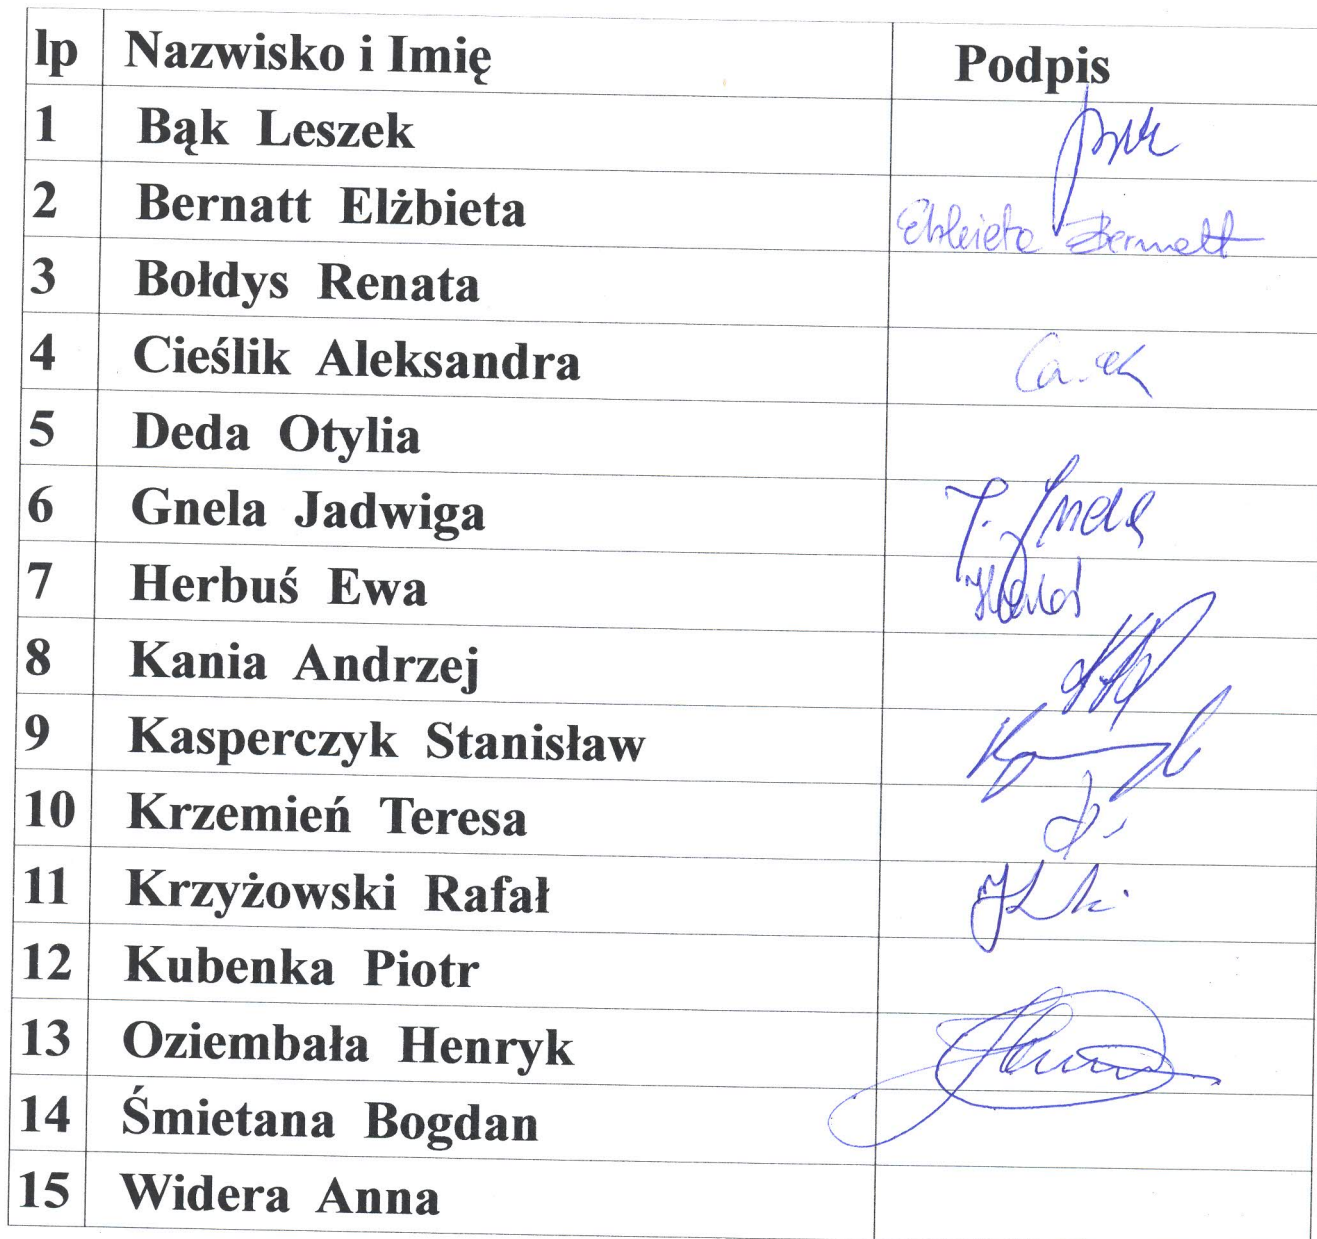 lp Nazwisko i Imię Podpis
1 Bąk Leszek
2 Bernatt Elżbieta Elżbieta Bernatt
3 Bołdys Renata
4 Cieślik Aleksandra
5 Deda Otylia
6 Gnela Jadwiga J. Gnela
7 Herbuś Ewa
8 Kania Andrzej
9 Kasperczyk Stanisław
10 Krzemień Teresa
11 Krzyżowski Rafał
12 Kubenka Piotr
13 Oziembała Henryk
14 Śmietana Bogdan
15 Widera Anna